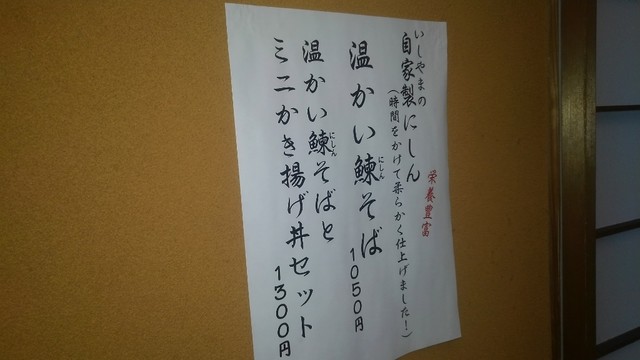 いしやまの
自家製にしん
栄養豊富
(時間をかけて柔らかく仕上げました!)
温かい鰊そば
にしん
1050円
温かい鰊そばと
にしん
ミニかき揚げ丼セット
1300円